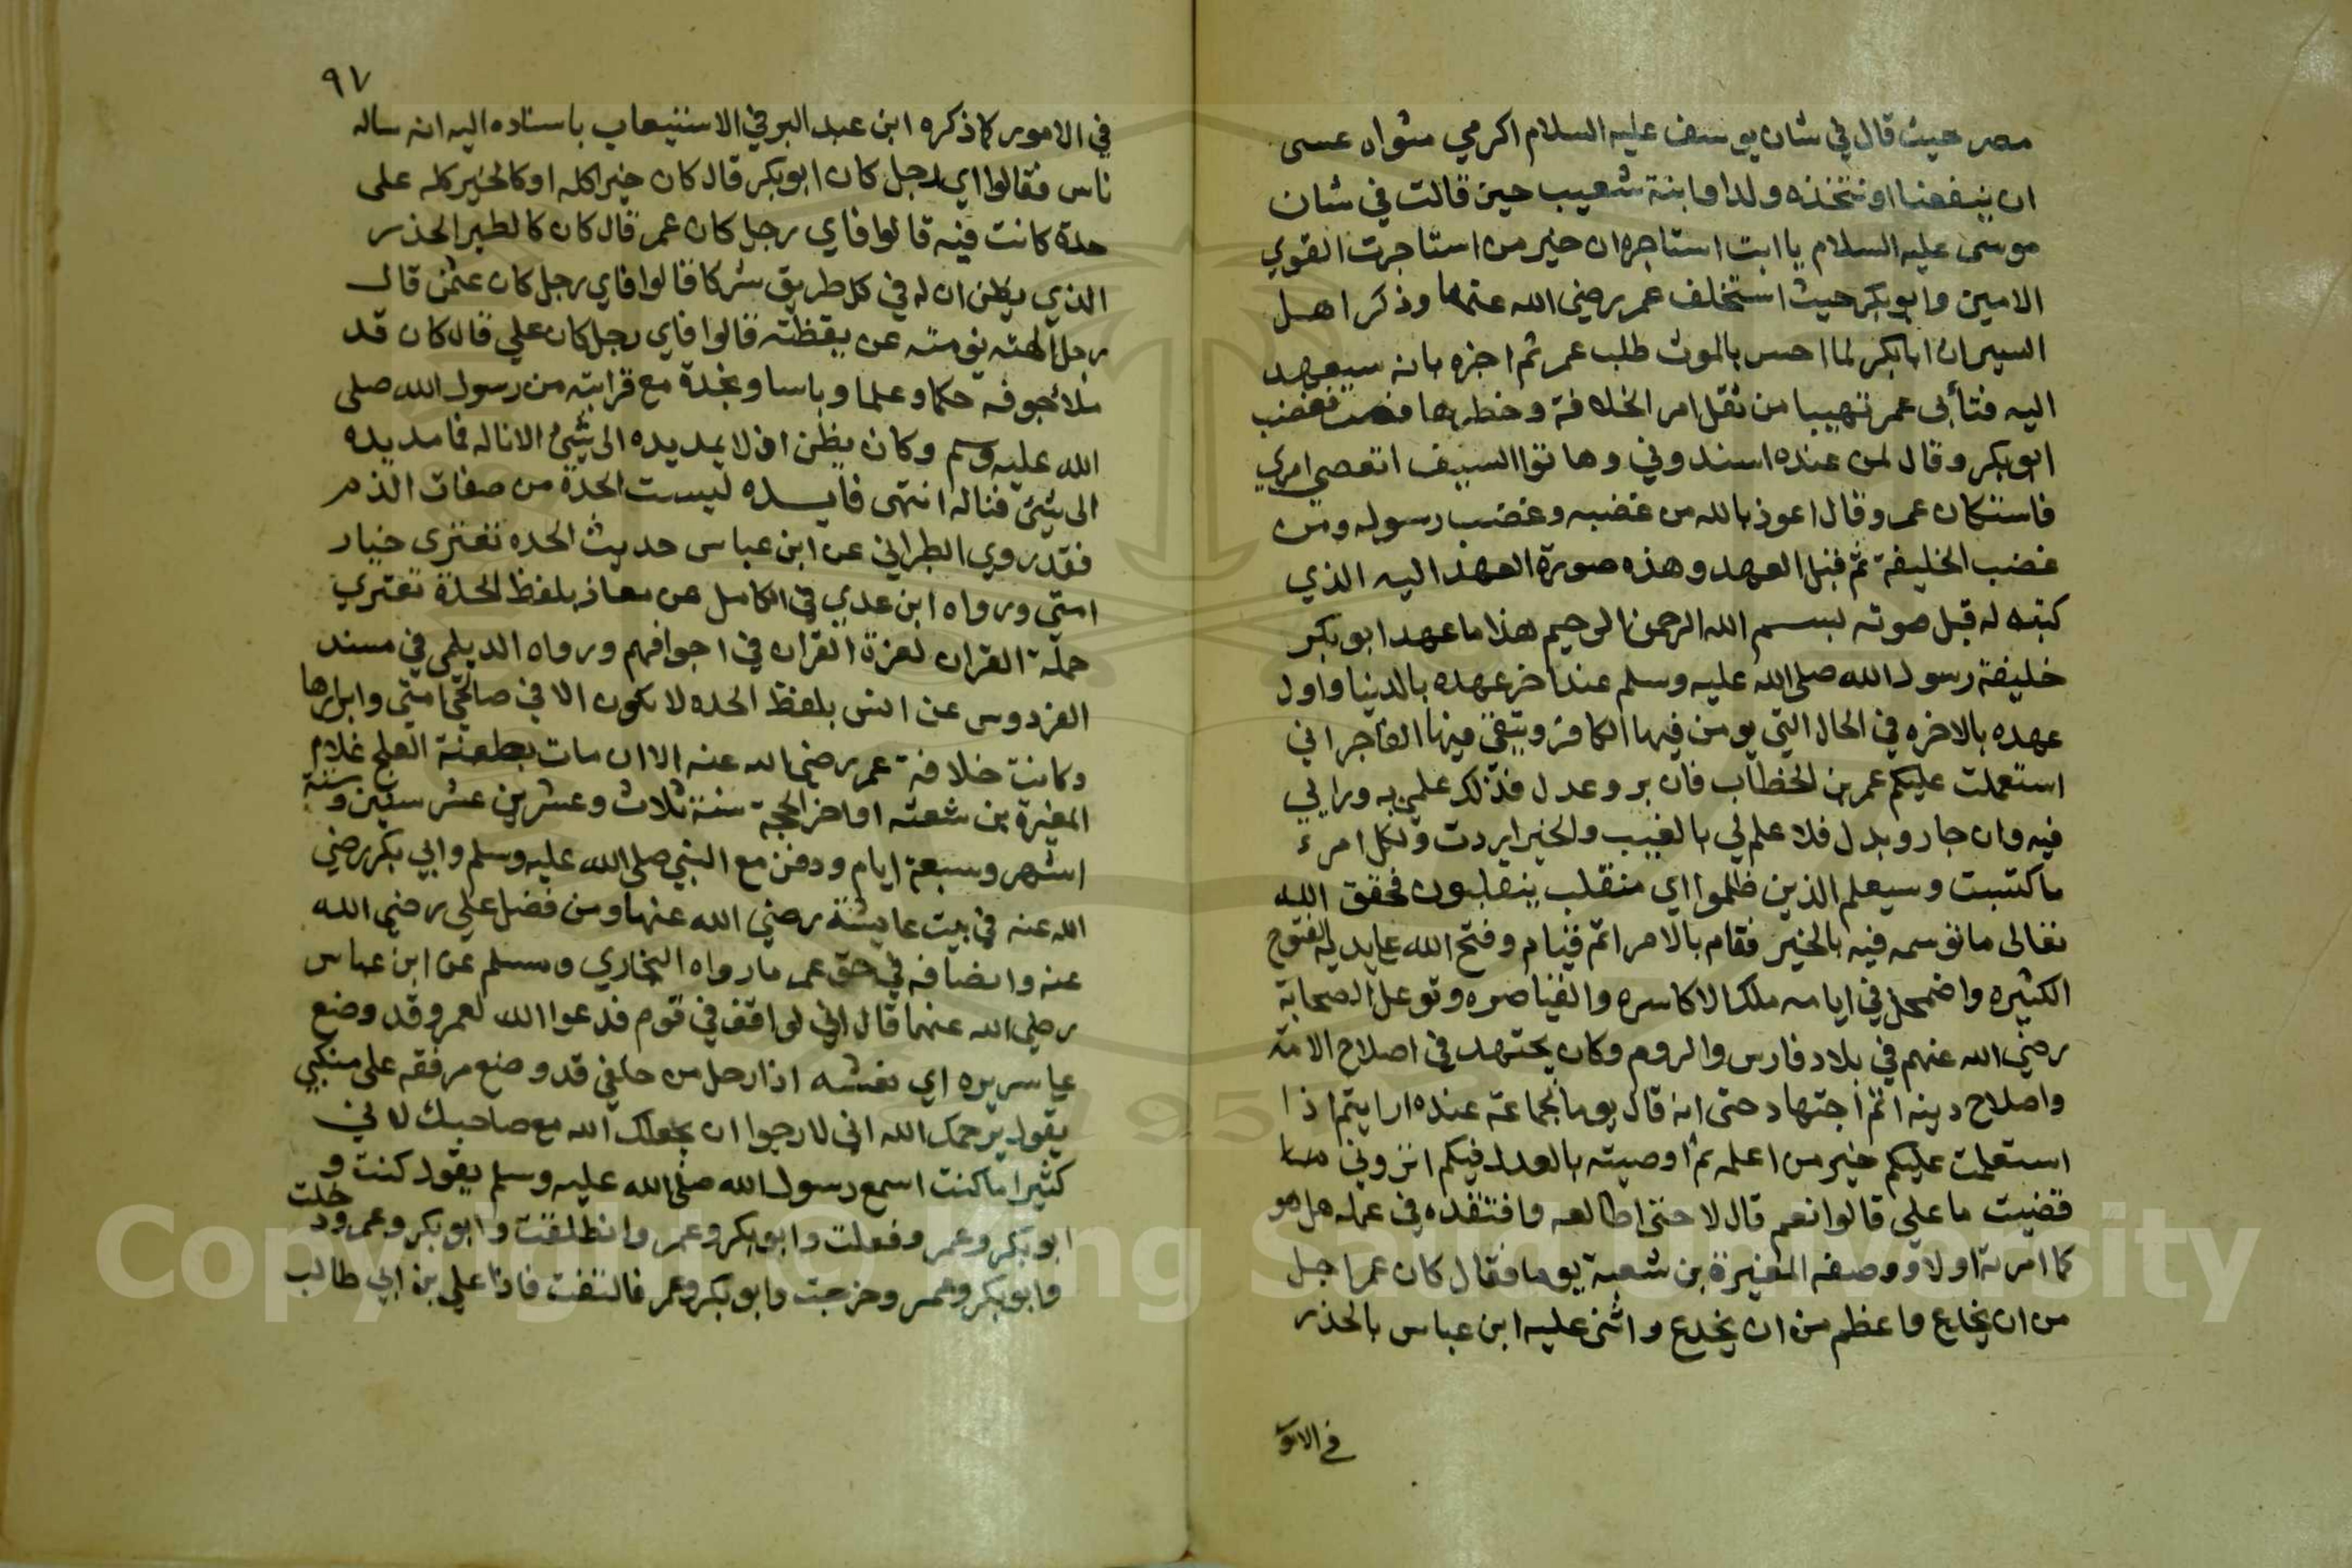 مصر حيث قال في شان يوسف عليه السلام اكرمي مثواه عسى
ان ينفعنا او نتخذه ولدا وابنة شعيب حين قالت في شان
موسى عليه السلام يا ابت استاجره ان خير من استاجرت القوي
الامين وابوبكر حيث استخلف عمر رضي الله عنهما وذكر اهل
السير ان ابابكر لما احس بالموت طلب عمر ثم اخبره بانه سيعهد
اليه فتأبى عمر تهيبا من ثقل امر الخلافة وخطرها فغضب
ابوبكر وقال لمن عنده اسندوني وهاتوا السيف اتعصي امري
فاستكان عمر وقال اعوذ بالله من غضبه وغضب رسوله ومن
غضب الخليفة ثم قبل العهد وهذه صورة العهد اليه الذي
كتبه له قبل موته بسم الله الرحمن الرحيم هذا ما عهد ابوبكر
خليفة رسول الله صلى الله عليه وسلم عند اخر عهده بالدنيا واول
عهده بالاخره في الحال التي يومن فيها الكافر ويتقي فيها الفاجر اني
استعملت عليكم عمر بن الخطاب فان بر وعدل فذلك علمي به ورايي
فيه وان جار وبدل فلا علم لي بالغيب والخير اردت ولكل امرء
ماكتسبت وسيعلم الذين ظلموا اي منقلب ينقلبون فحقق الله
تعالى ما توسمه فيه بالخير فقام بالامر اتم قيام وفتح الله على يديه الفتوح
الكثيره واضمحل في ايامه ملك الاكاسره والقياصره وتوغل الصحابة
رضي الله عنهم في بلاد فارس والروم وكان يجتهد في اصلاح الامة
واصلاح دينه اتم اجتهاد حتى انه قال يوما لجماعة عنده ارايتم اذا
استعملت عليكم خير من اعلمه ثم اوصيته بالعدل فيكم اتروني
قضيت ما علي قالوا نعم قال لا حتى اطالعه وافتقده في عمله هل هو
كما امرته اولا ووصفه المغيرة بن شعبة يوما فقال كان عمر اجل
من ان يخادع واعظم من ان يخدع واثنى عليه ابن عباس بالحذر
في الامور
٩٧
في الامور كما ذكره ابن عبد البر في الاستيعاب باسناده اليه انه ساله
ناس فقالوا اي رجل كان ابوبكر قال كان خيرا كله او كالخير كله على
حدة كانت فيه قالوا فاي رجل كان عمر قال كان كالطير الحذر
الذي يظن ان له في كل طريق شركا قالوا فاي رجل كان عثمن قال
رجل الهته نومته عن يقظته قالوا فاي رجل كان علي قال كان قد
ملا جوفه حكما وعلما وباسا ونجدة مع قرابته من رسول الله صلى
الله عليه وسم وكان يظن ان لا يمد يده الى شيئ الا ناله فما مد يده
الى شيئ فناله انتهى فايده ليست الحدة من صفات الذم
فقد روي الطبراني عن ابن عباس حديث الحده تعتري خيار
امتي ورواه ابن عدي في الكامل عن معاذ بلفظ الحدة تعتري
حملة القران لعزة القران في اجوافهم ورواه الديلمي في مسند
الفردوس عن انس بلفظ الحده لا تكون الا في صالحي امتي وابرارها
وكانت خلافة عمر رضي الله عنه الا ان مات بطعنة العلج غلام
المغيرة بن شعبه اواخر الحجة سنة ثلاث وعشرين عشر سنين وستة
اشهر وسبعة ايام ودفن مع النبي صلى الله عليه وسلم وابي بكر رضي
الله عنه في بيت عايشة رضي الله عنها ومن فضل علي رضي الله
عنه وانصافه في حق عمر ما رواه البخاري ومسلم عن ابن عباس
رضي الله عنهما قال اني لواقف في قوم فدعوا الله لعمر وقد وضع
على سريره اي نعشه اذا رجل من خلفي قد وضع مرفقه على منكبي
يقول يرحمك الله اني لارجوا ان يجعلك الله مع صاحبيك لاني
كثيرا ما كنت اسمع رسول الله صلى الله عليه وسلم يقول كنت و
ابوبكر وعمر وفعلت وابوبكر وعمر وانطلقت وابوبكر وعمر ودخلت
وابوبكر وعمر وخرجت وابوبكر وعمر فالتفت فاذا علي بن ابي طالب
Copyright © King Saud University